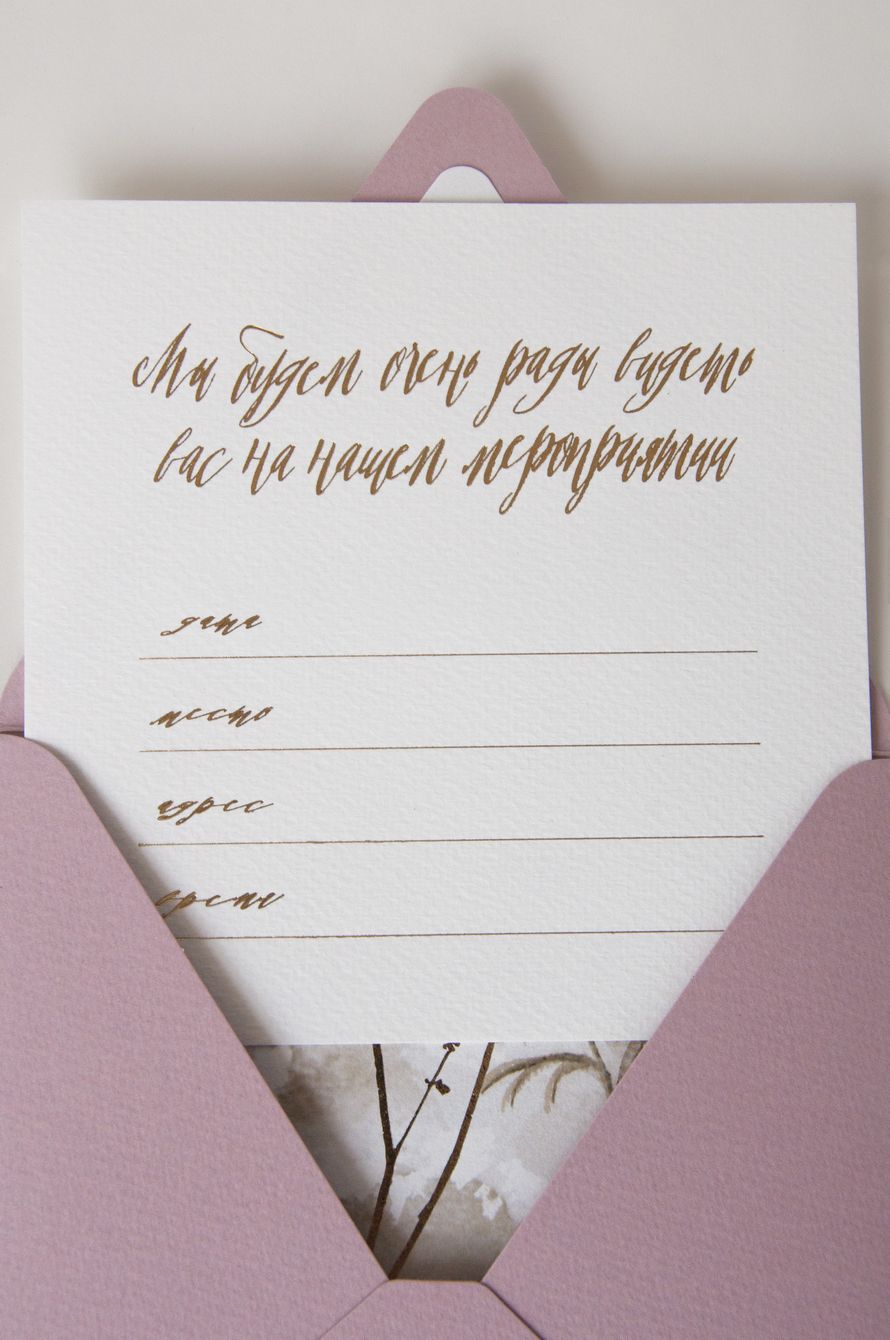 Мы будем очень рады видеть
вас на нашем мероприятии
дата
место
адрес
время